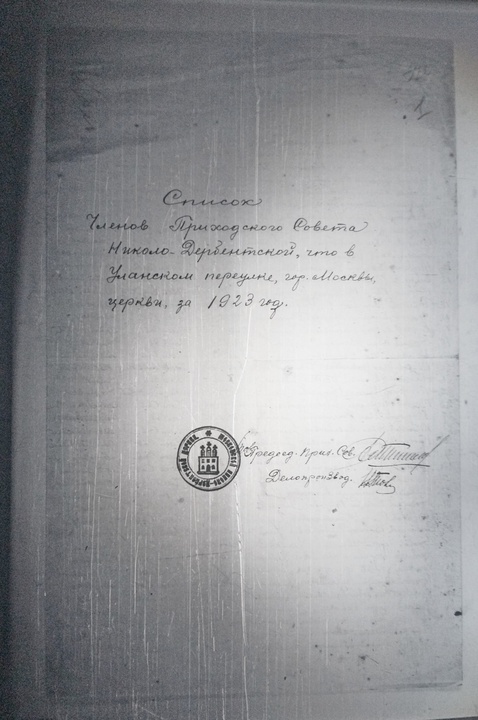 1
Список
Членов Приходского Совета
Николо-Дербентской, что в
Уланском переулке, гор. Москвы,
церкви, за 1923 год.
Председ. Прих. Сов.
Делопроизвод.